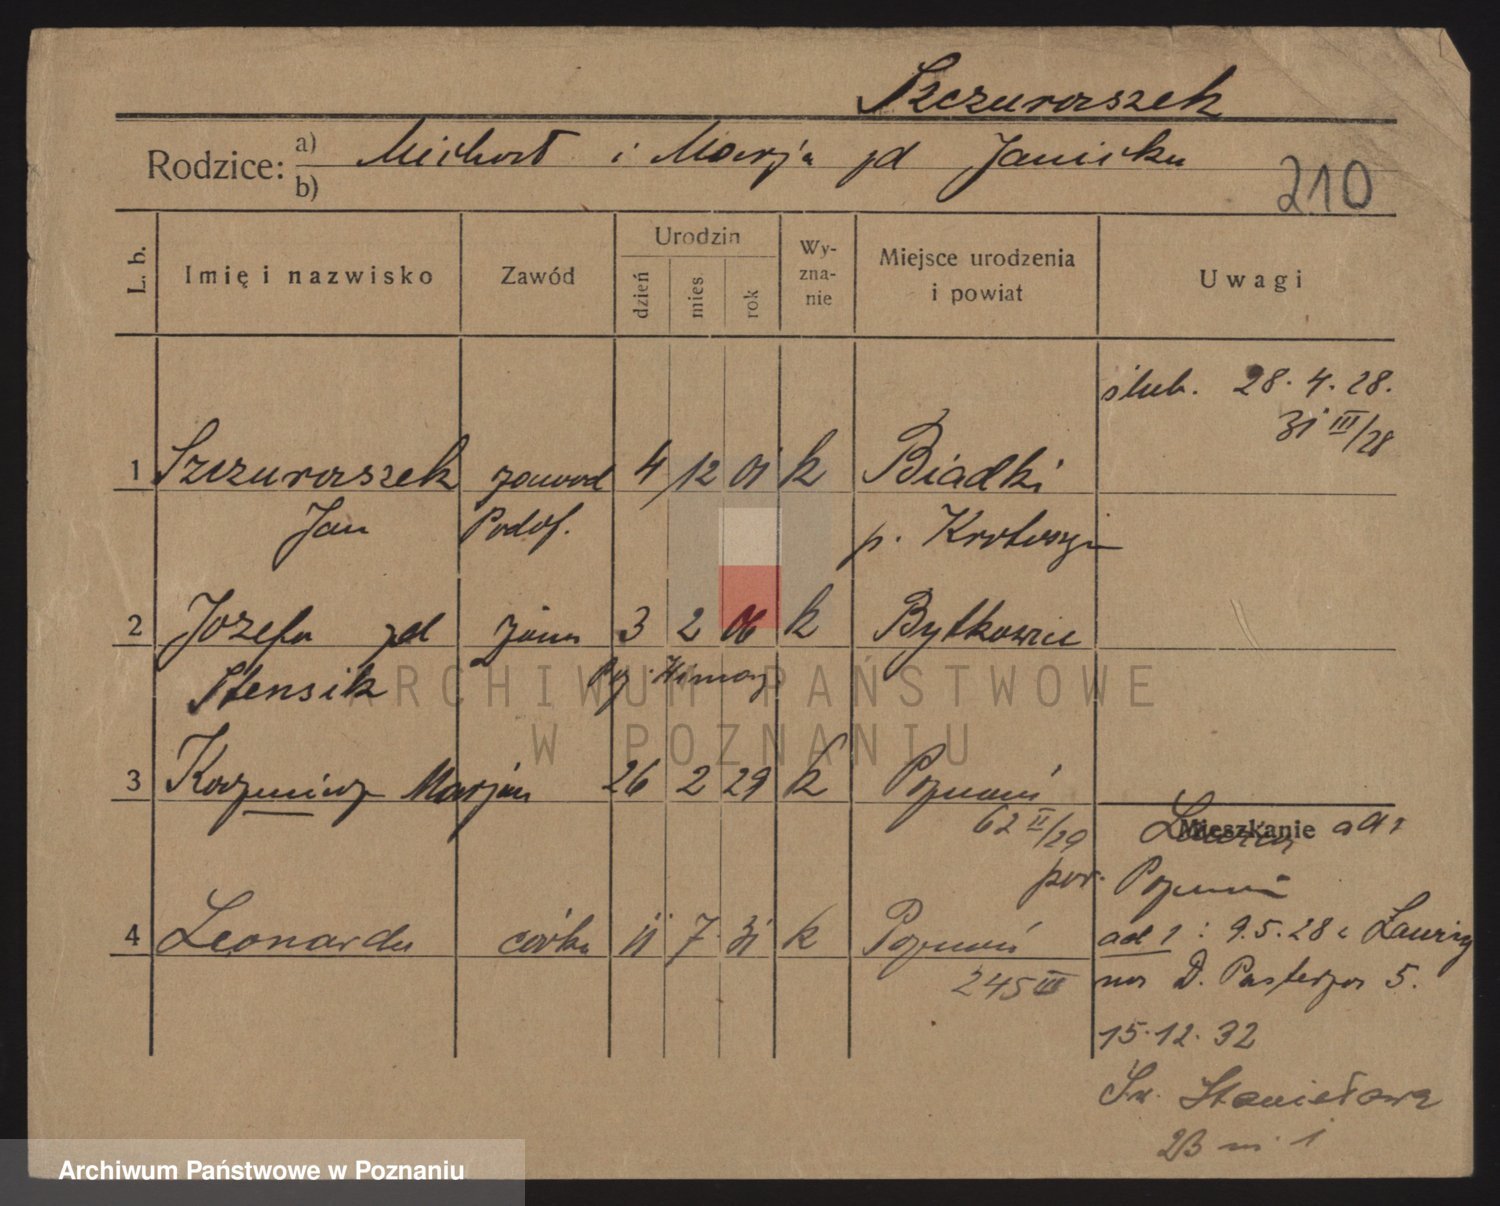 Szczuraszek
Rodzice: a) Michał i Marja zd Janicka
b)
210
L. b. Imię i nazwisko Zawód Urodzin dzień mies. rok Wy-zna-nie Miejsce urodzenia i powiat Uwagi
ślub. 28. 4. 28.
31 III/28
1 Szczuraszek zawod 4 12 01 k Biadki
Jan Podof. p. Krotoszyn
2 Józefa zd żona 3 2 06 k Bytkowice
Stensik
3 Kazimierz Marjan 26 2 29 k Poznań
62 II/29
Mieszkanie
por. Poznań
4 Leonarda córka 11 7 31 k Poznań
245 III
ad 1 : 9.5.28 z Ławicy
na D. Pasterza 5.
15.12.32
ARCHIWUM PAŃSTWOWE
W POZNANIU
Archiwum Państwowe w Poznaniu